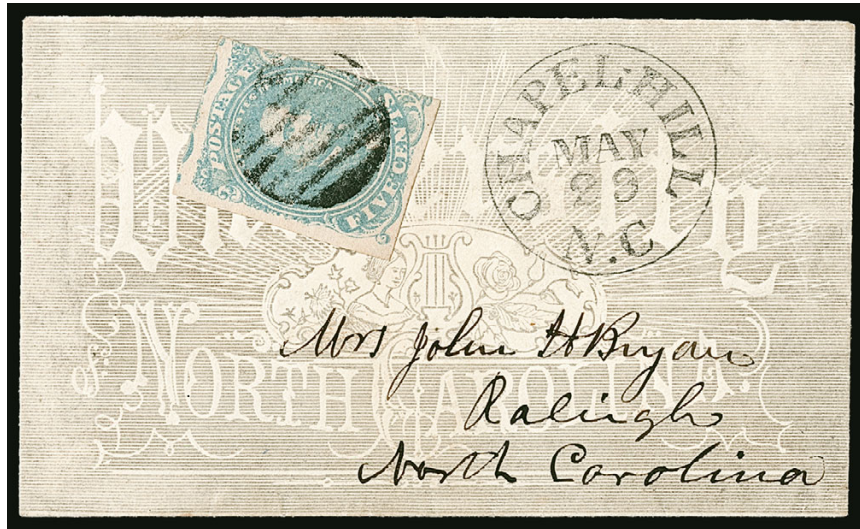 POSTAGE
FIVE CENTS
CHAPEL-HILL
MAY
23
N.C
of NORTH CAROLINA.
Mrs John H Bryan
Raleigh
North Carolina